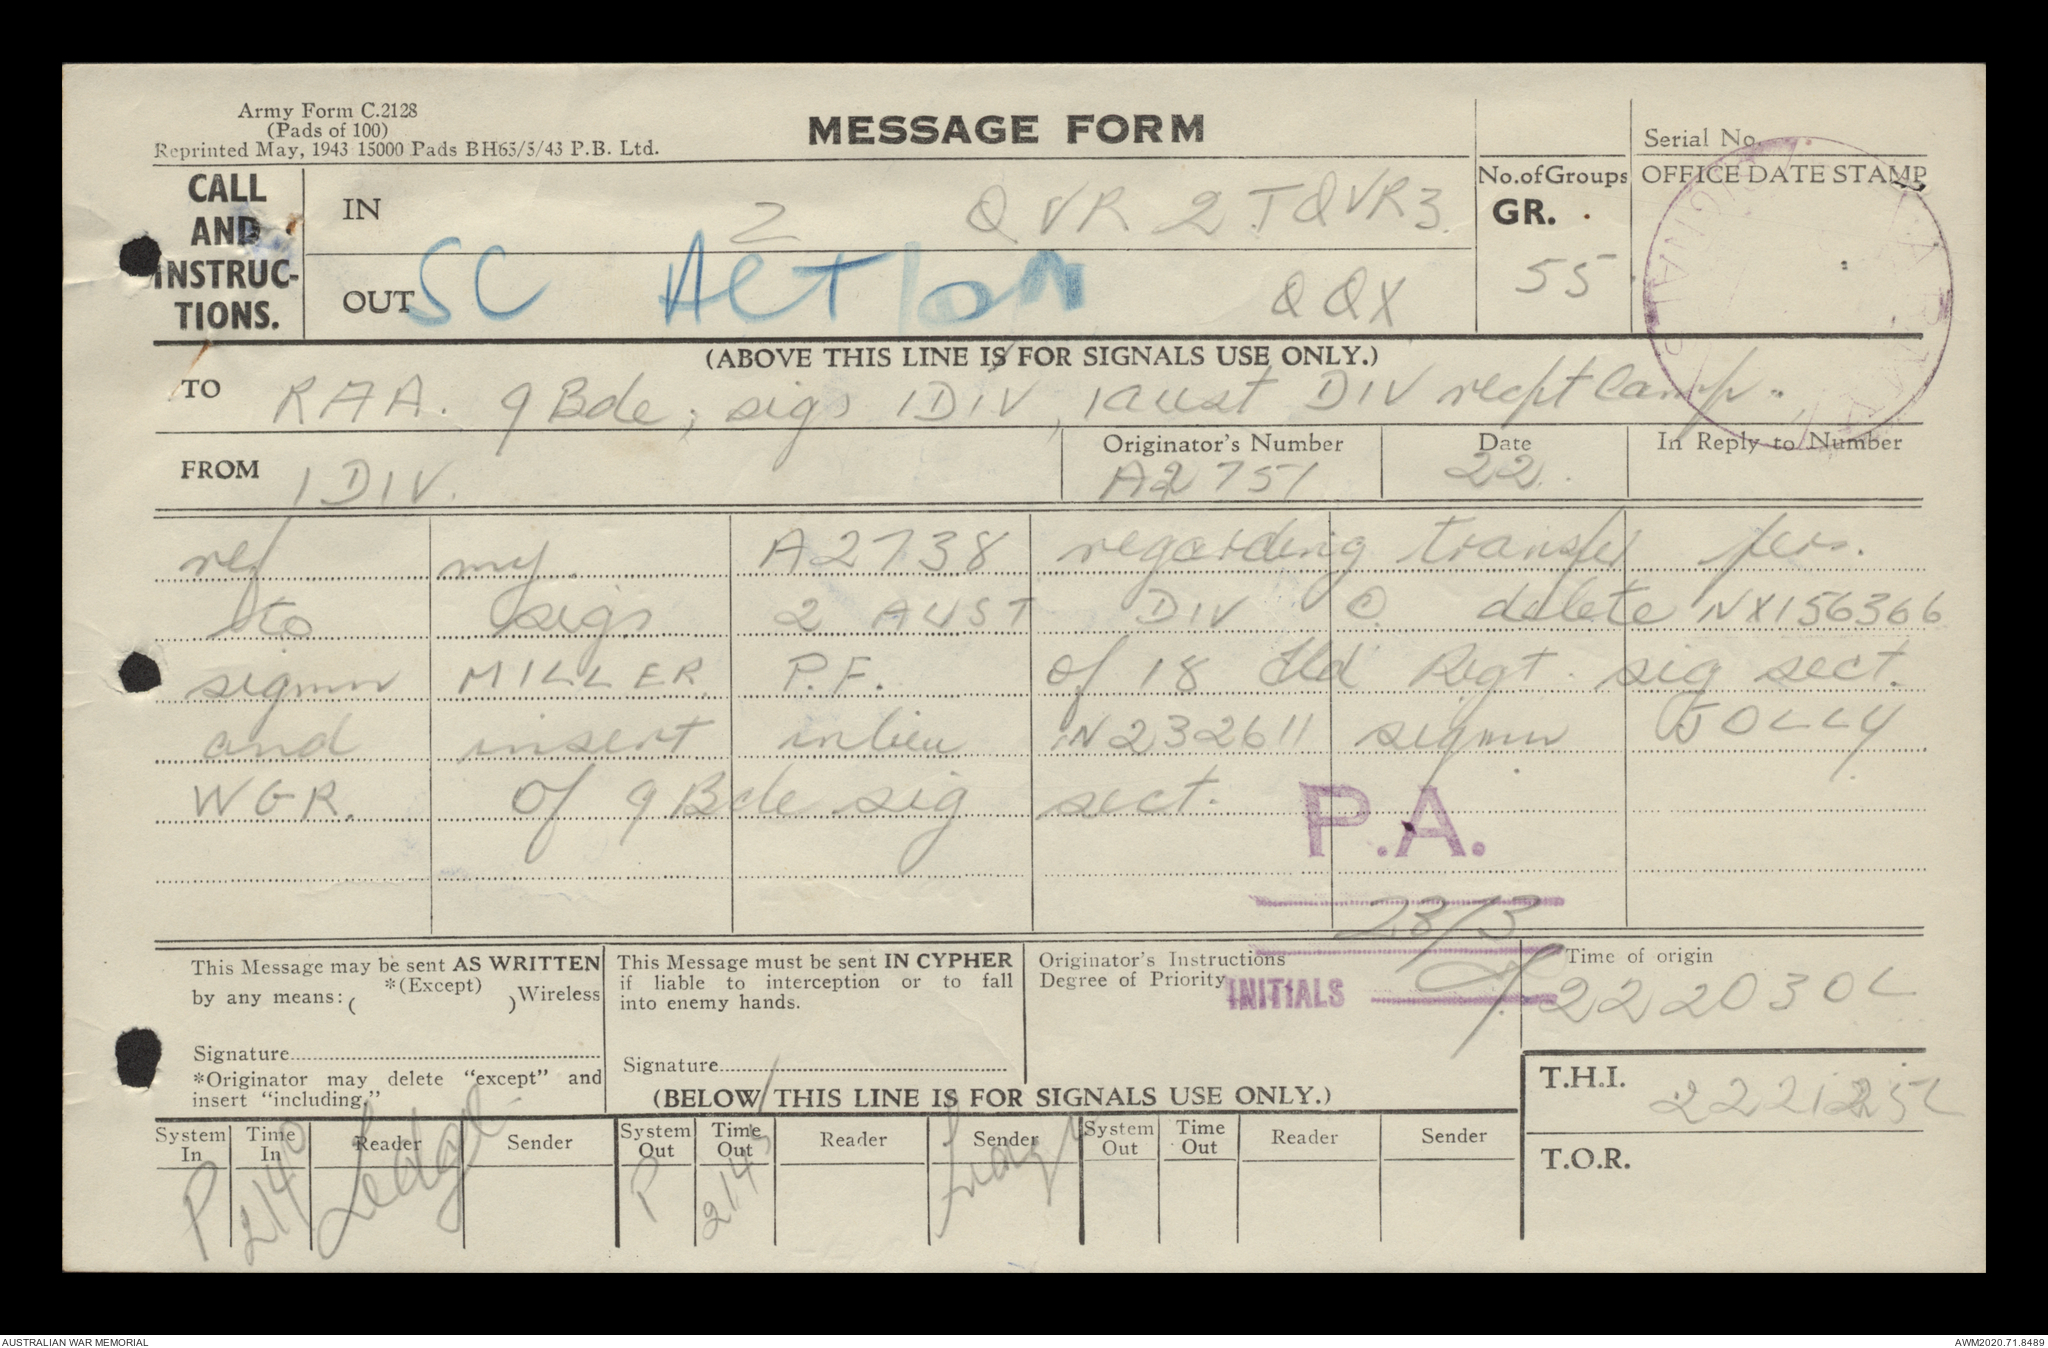 Army Form C.2128
(Pads of 100)
Reprinted May, 1943 15000 Pads BH65/5/43 P.B. Ltd.
MESSAGE FORM
Serial No.
CALL AND INSTRUC- TIONS.
IN Z QVR 2 T QVR3.
No. of Groups GR. 55
OFFICE DATE STAMP
OUT SC Action QQX
(ABOVE THIS LINE IS FOR SIGNALS USE ONLY.)
TO RAA. 9 Bde; sigs 1 DIV, 1 Aust DIV recpt Camp.
FROM 1 DIV.
Originator's Number A2751
Date 22.
In Reply to Number
ref my A2738 regarding transfer pers.
to sigs 2 AUST DIV (.) delete NX156366
sigmn MILLER P.F. of 18 fld Regt. sig sect.
and insert inlieu N232611 sigmn JOLLY
WGR. of 9 Bde sig sect.
P.A.
23/3
INITIALS
This Message may be sent AS WRITTEN
by any means: *(Except)
( ) Wireless
Signature
*Originator may delete “except” and
insert “including.”
This Message must be sent IN CYPHER
if liable to interception or to fall
into enemy hands.
Signature
Originator's Instructions
Degree of Priority
Time of origin
222030L
(BELOW THIS LINE IS FOR SIGNALS USE ONLY.)
T.H.I. 222125L
T.O.R.
System In Time In Reader Sender System Out Time Out Reader Sender System Out Time Out Reader Sender
P 2140 Ledge P 2145
AUSTRALIAN WAR MEMORIAL
AWM2020.71.8489